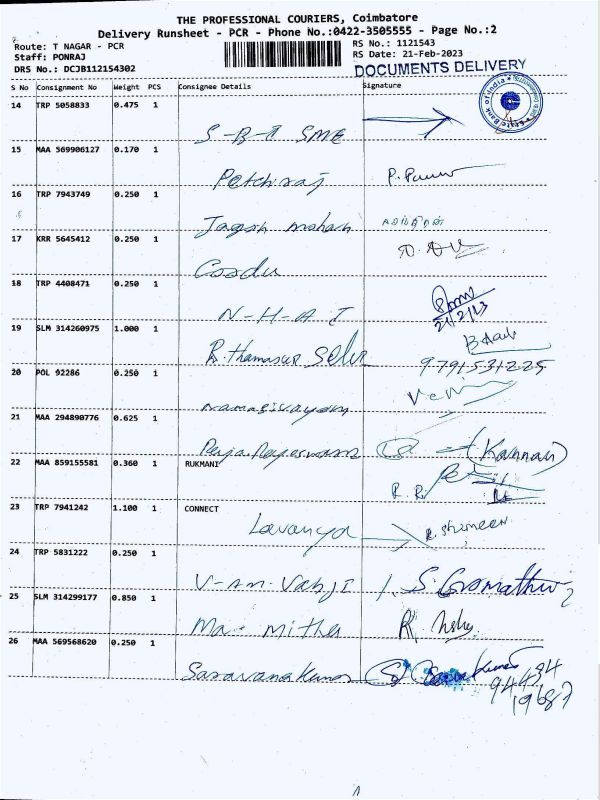 THE PROFESSIONAL COURIERS, Coimbatore
Delivery Runsheet - PCR - Phone No.:0422-3505555 - Page No.:2
Route: T NAGAR - PCR
RS No.: 1121543
Staff: PONRAJ
RS Date: 21-Feb-2023
DRS No.: DCJB112154302
DOCUMENTS DELIVERY
S No Consignment No Weight PCS Consignee Details Signature
State Bank of India
14 TRP 5058833 0.475 1
S-B-I SME
15 MAA 569906127 0.170 1
Petchiraj
16 TRP 7943749 0.250 1
Jagan mohan
17 KRR 5645412 0.250 1
18 TRP 4408471 0.250 1
N-H-A I
21/2/23
19 SLM 314260975 1.000 1
9791531225
20 POL 92286 0.250 1
21 MAA 294890776 0.625 1
(Kannan)
22 MAA 859155581 0.360 1 RUKMANI
R. R.
23 TRP 7941242 1.100 1 CONNECT
Lavanya
24 TRP 5831222 0.250 1
25 SLM 314299177 0.850 1
Ma- Mitha
26 MAA 569568620 0.250 1
Saravanakumar
94434
19687